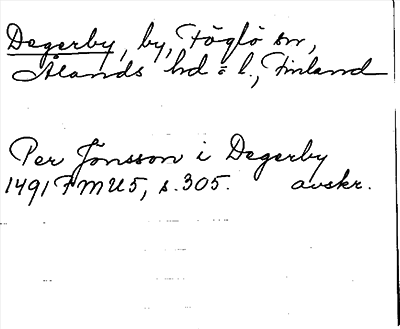 Degerby, by, Föglö sn,
Ålands hd = l., Finland
Per Jönsson i Degerby
1491 FMU5, s. 305. avskr.